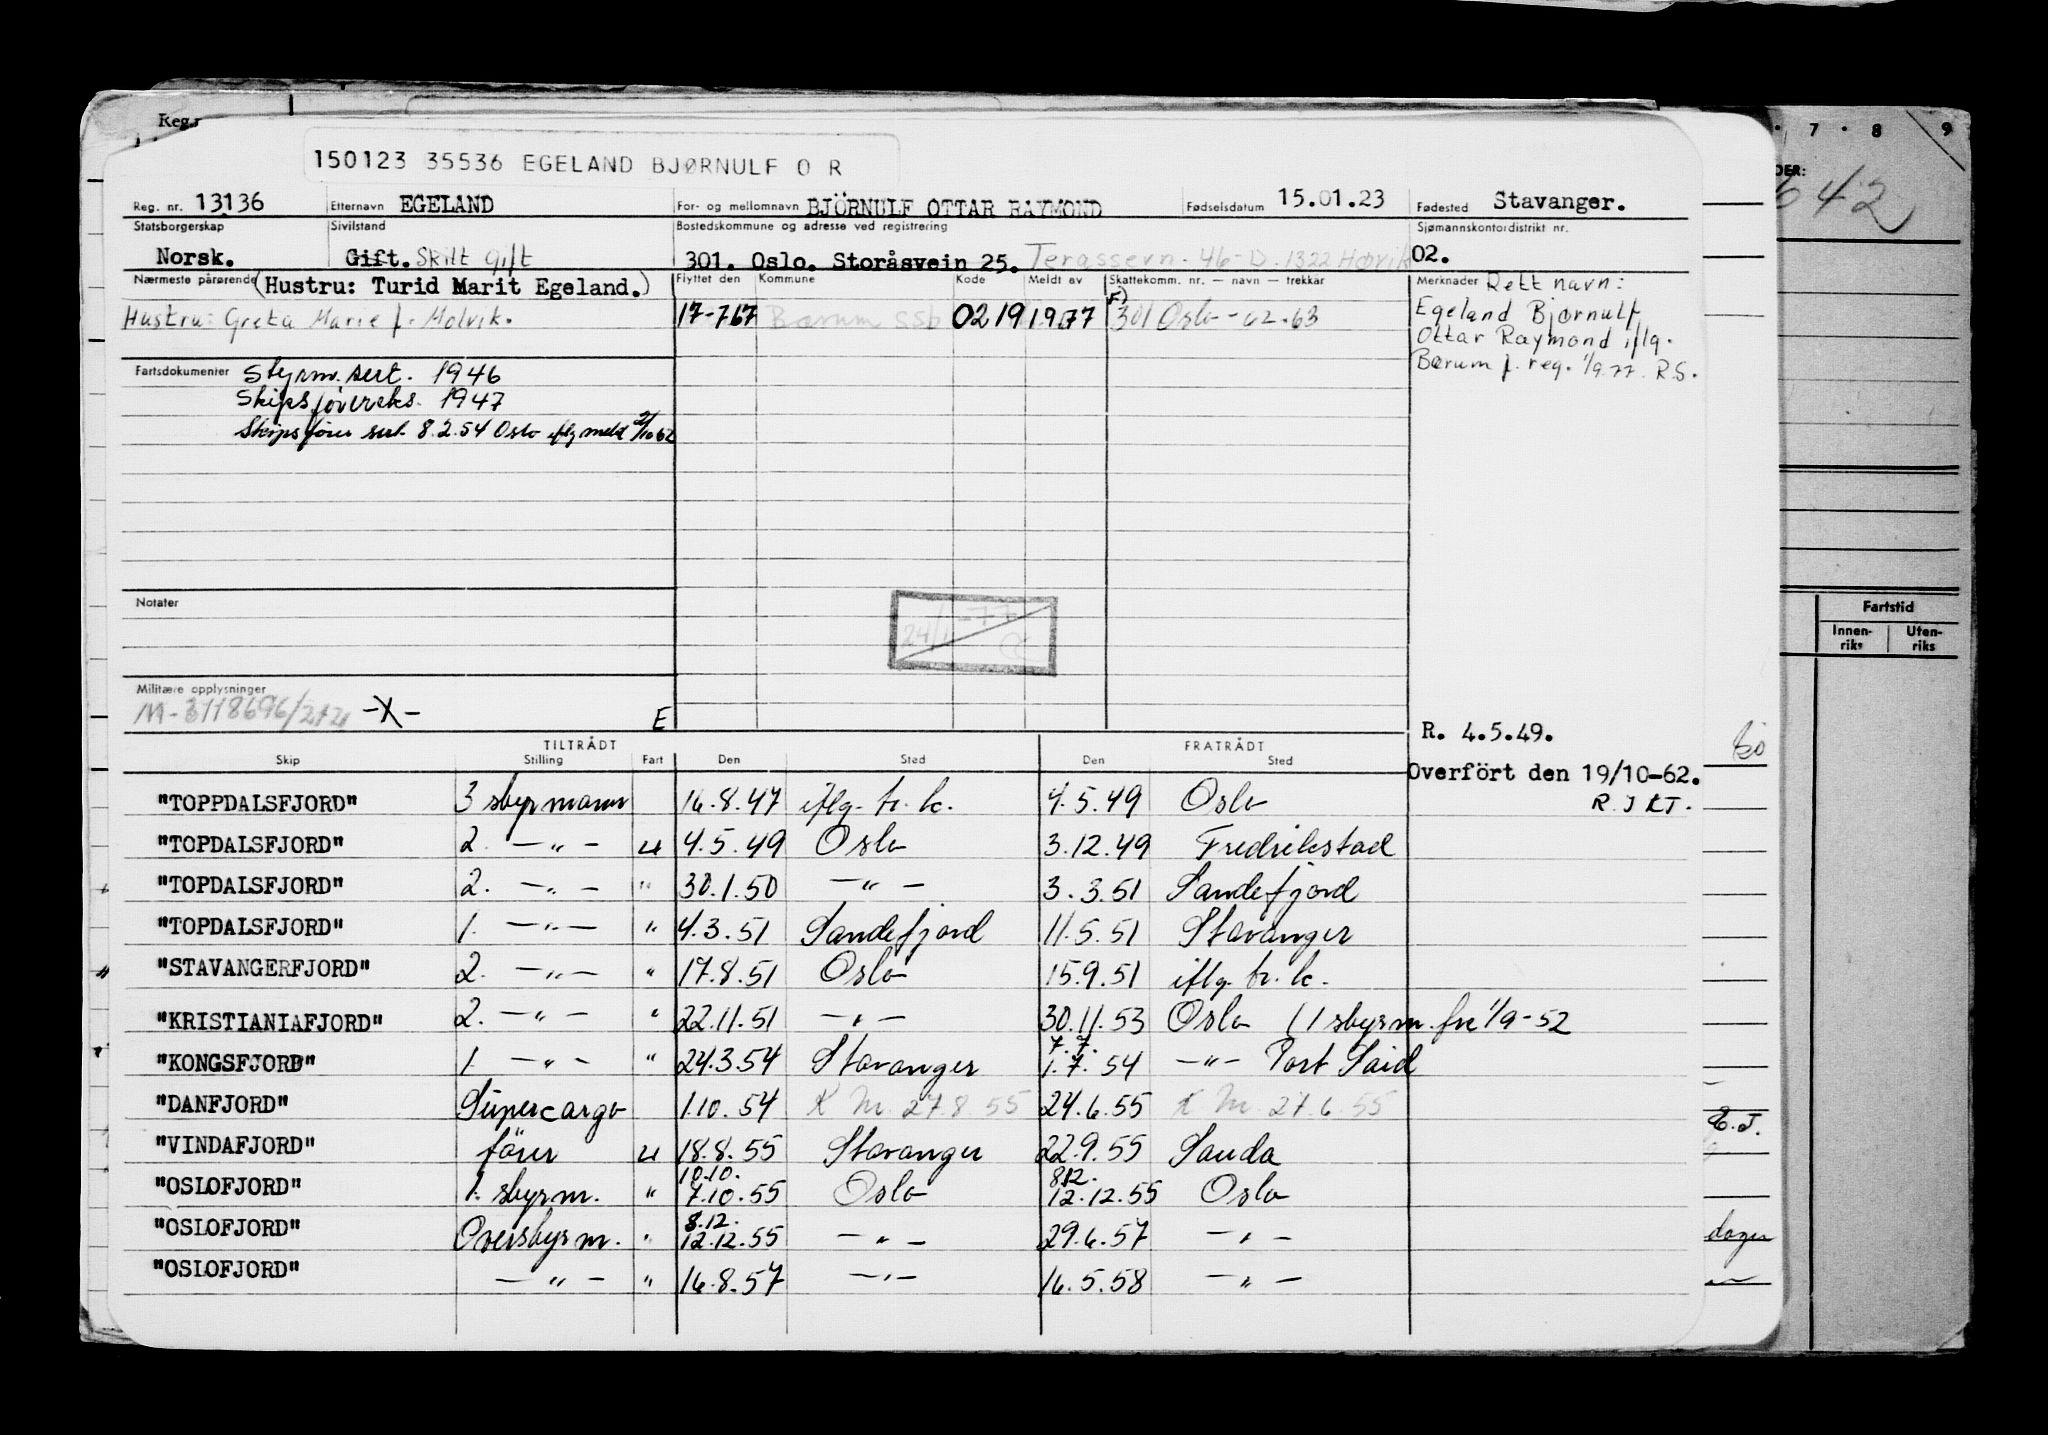 Reg.
7 · 8 9
DER:
642
150123 35536 EGELAND BJØRNULF O R
Reg. nr. 13136 Etternavn EGELAND For- og mellomnavn BJÖRNULF OTTAR RAYMOND Fødselsdatum 15.01.23 Fødested Stavanger.
Statsborgerskap Sivilstand Bostedskommune og adresse ved registrering Sjømannskontordistrikt nr.
Norsk. Gift. Skilt Gift 301. Oslo. Storåsvein 25. Terassevn. 46-D. 1322 Høvik 02.
Nærmeste pårørende (Hustru: Turid Marit Egeland.) Flyttet den Kommune Kode Meldt av Skattekomm. nr. — navn — trekkår Merknader Rett navn:
Hustru: Greta Marie f. Molvik. 17-767 Bærum ssb 0219 1977 301 Oslo - 62.63 Egeland Bjørnulf
Ottar Raymond iflg.
Bærum f. reg. 1/9.77. R.S.
Fartsdokumenter Styrm. sert. 1946
Skipsförereks. 1947
Skipsförer sert. 8.2.54 Oslo iflg meld 2/10 62
Notater
24/1-77
Fartstid
Innen-riks Uten-riks
Militære opplysninger
M-3118696/ -X- E
R. 4.5.49.
TILTRÅDT FRATRÅDT
Skip Stilling Fart Den Sted Den Sted
Overfört den 19/10-62.
"TOPPDALSFJORD" 3 styrmann 16.8.47 iflg. tr. k. 4.5.49 Oslo
"TOPDALSFJORD" 2. —"— u 4.5.49 Oslo 3.12.49 Fredrikstad
"TOPDALSFJORD" 2. —"— " 30.1.50 —"— 3.3.51 Sandefjord
"TOPDALSFJORD" 1. —"— " 4.3.51 Sandefjord 11.5.51 Stavanger
"STAVANGERFJORD" 2. —"— " 17.8.51 Oslo 15.9.51 iflg. tr. k.
"KRISTIANIAFJORD" 2. —"— " 22.11.51 —"— 30.11.53 Oslo (1 styrm. fra 1/9-52
7.7.
"KONGSFJORD" 1 —"— " 24.3.54 Stavanger 1.7.54 —"— Port Said
"DANFJORD" Supercargo 1.10.54 K M. 27.8 55 24.6.55 K M. 27.6.55
E.J.
"VINDAFJORD" förer u 18.8.55 Stavanger 22.9.55 Sauda
10.10. 8.12.
"OSLOFJORD" 1. styrm. " 7.10.55 Oslo 12.12.55 Oslo
8.12.
"OSLOFJORD" Overstyrm. " 12.12.55 —"— 29.6.57 —"—
dager
"OSLOFJORD" —"— " 16.8.57 —"— 16.5.58 —"—